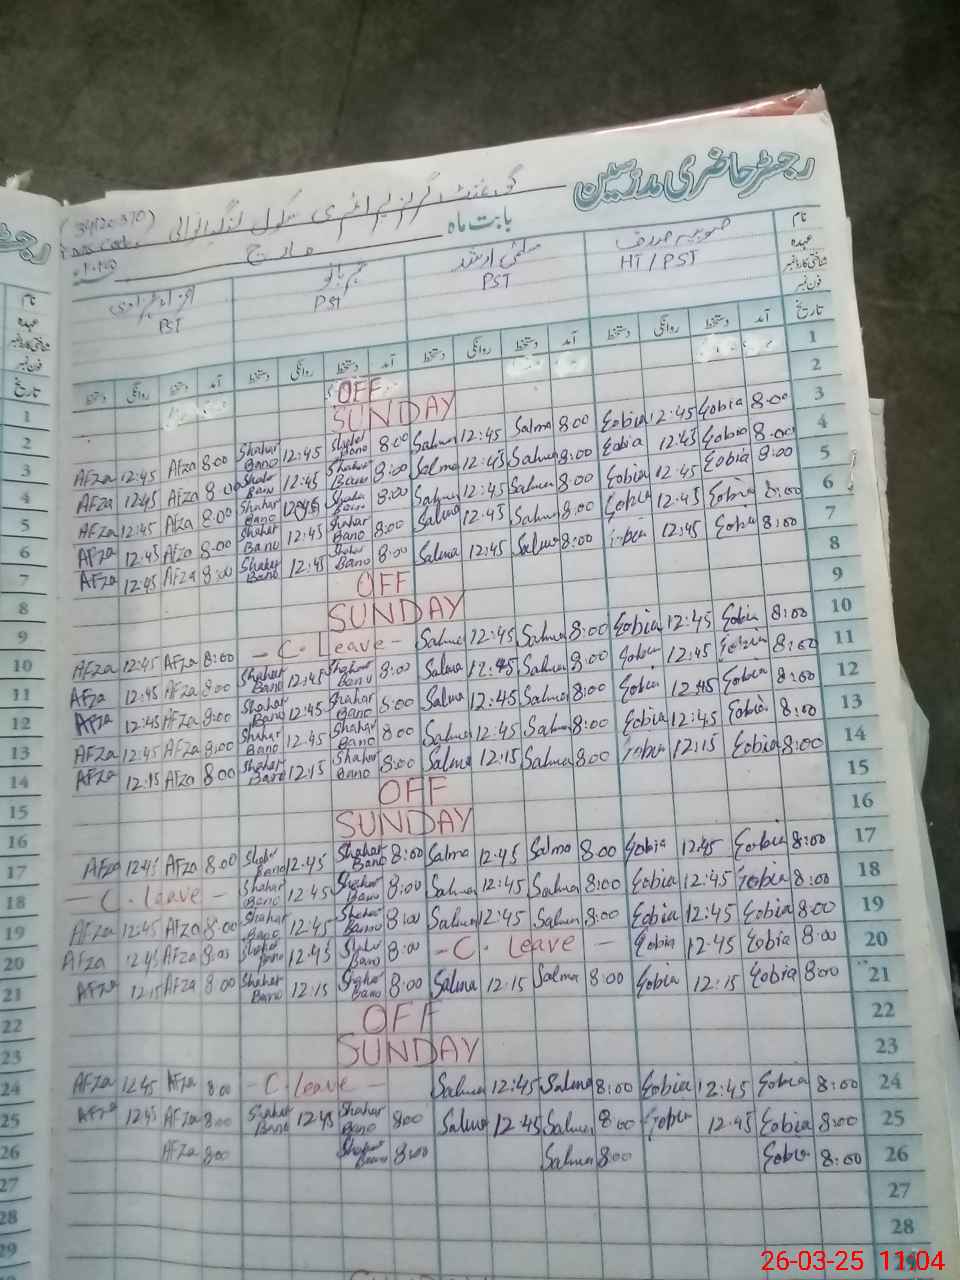 رجسٹر حاضری مدرسین
گورنمنٹ گرلز پرائمری سکول
(34120370)
بابت ماہ مارچ
نام
عہدہ HT / PST PST PST PST
شناختی کارڈ نمبر
فون نمبر
تاریخ آمد دستخط روانگی دستخط آمد دستخط روانگی دستخط آمد دستخط روانگی دستخط آمد دستخط روانگی دستخط
1 OFF
2 SUNDAY
AFza 12:45 AFza 8:00 Shahar Bano 12:45 Shahar Bano 8:00 Salma 12:45 Salma 8:00 Zobia 12:45 Zobia 8:00 3
AFza 12:45 AFza 8:00 Shahar Bano 12:45 Shahar Bano 8:00 Salma 12:45 Salma 8:00 Zobia 12:45 Zobia 8:00 4
AFza 12:45 AFza 8:00 Shahar Bano 12:45 Shahar Bano 8:00 Salma 12:45 Salma 8:00 Zobia 12:45 Zobia 8:00 5
AFza 12:45 AFza 8:00 Shahar Bano 12:45 Shahar Bano 8:00 Salma 12:45 Salma 8:00 Zobia 12:45 Zobia 8:00 6
AFza 12:45 AFza 8:00 Shahar Bano 12:45 Shahar Bano 8:00 Salma 12:45 Salma 8:00 Zobia 12:45 Zobia 8:00 7
OFF 8
SUNDAY 9
AFza 12:45 AFza 8:00 - C. Leave - Salma 12:45 Salma 8:00 Zobia 12:45 Zobia 8:00 10
AFza 12:45 AFza 8:00 Shahar Bano 12:45 Shahar Bano 8:00 Salma 12:45 Salma 8:00 Zobia 12:45 Zobia 8:00 11
AFza 12:45 AFza 8:00 Shahar Bano 12:45 Shahar Bano 8:00 Salma 12:45 Salma 8:00 Zobia 12:45 Zobia 8:00 12
AFza 12:45 AFza 8:00 Shahar Bano 12:45 Shahar Bano 8:00 Salma 12:45 Salma 8:00 Zobia 12:45 Zobia 8:00 13
AFza 12:15 AFza 8:00 Shahar Bano 12:15 Shahar Bano 8:00 Salma 12:15 Salma 8:00 Zobia 12:15 Zobia 8:00 14
OFF 15
SUNDAY 16
AFza 12:45 AFza 8:00 Shahar Bano 12:45 Shahar Bano 8:00 Salma 12:45 Salma 8:00 Zobia 12:45 Zobia 8:00 17
- C. leave - Shahar Bano 12:45 Shahar Bano 8:00 Salma 12:45 Salma 8:00 Zobia 12:45 Zobia 8:00 18
AFza 12:45 AFza 8:00 Shahar Bano 12:45 Shahar Bano 8:00 Salma 12:45 Salma 8:00 Zobia 12:45 Zobia 8:00 19
AFza 12:45 AFza 8:00 Shahar Bano 12:45 Shahar Bano 8:00 - C. leave - Zobia 12:45 Zobia 8:00 20
AFza 12:15 AFza 8:00 Shahar Bano 12:15 Shahar Bano 8:00 Salma 12:15 Salma 8:00 Zobia 12:15 Zobia 8:00 21
OFF 22
SUNDAY 23
AFza 12:45 AFza 8:00 - C. leave - Salma 12:45 Salma 8:00 Zobia 12:45 Zobia 8:00 24
AFza 12:45 AFza 8:00 Shahar Bano 12:45 Shahar Bano 8:00 Salma 12:45 Salma 8:00 Zobia 12:45 Zobia 8:00 25
AFza 8:00 Shahar Bano 8:00 Salma 8:00 Zobia 8:00 26
27
28
29
26-03-25 11:04